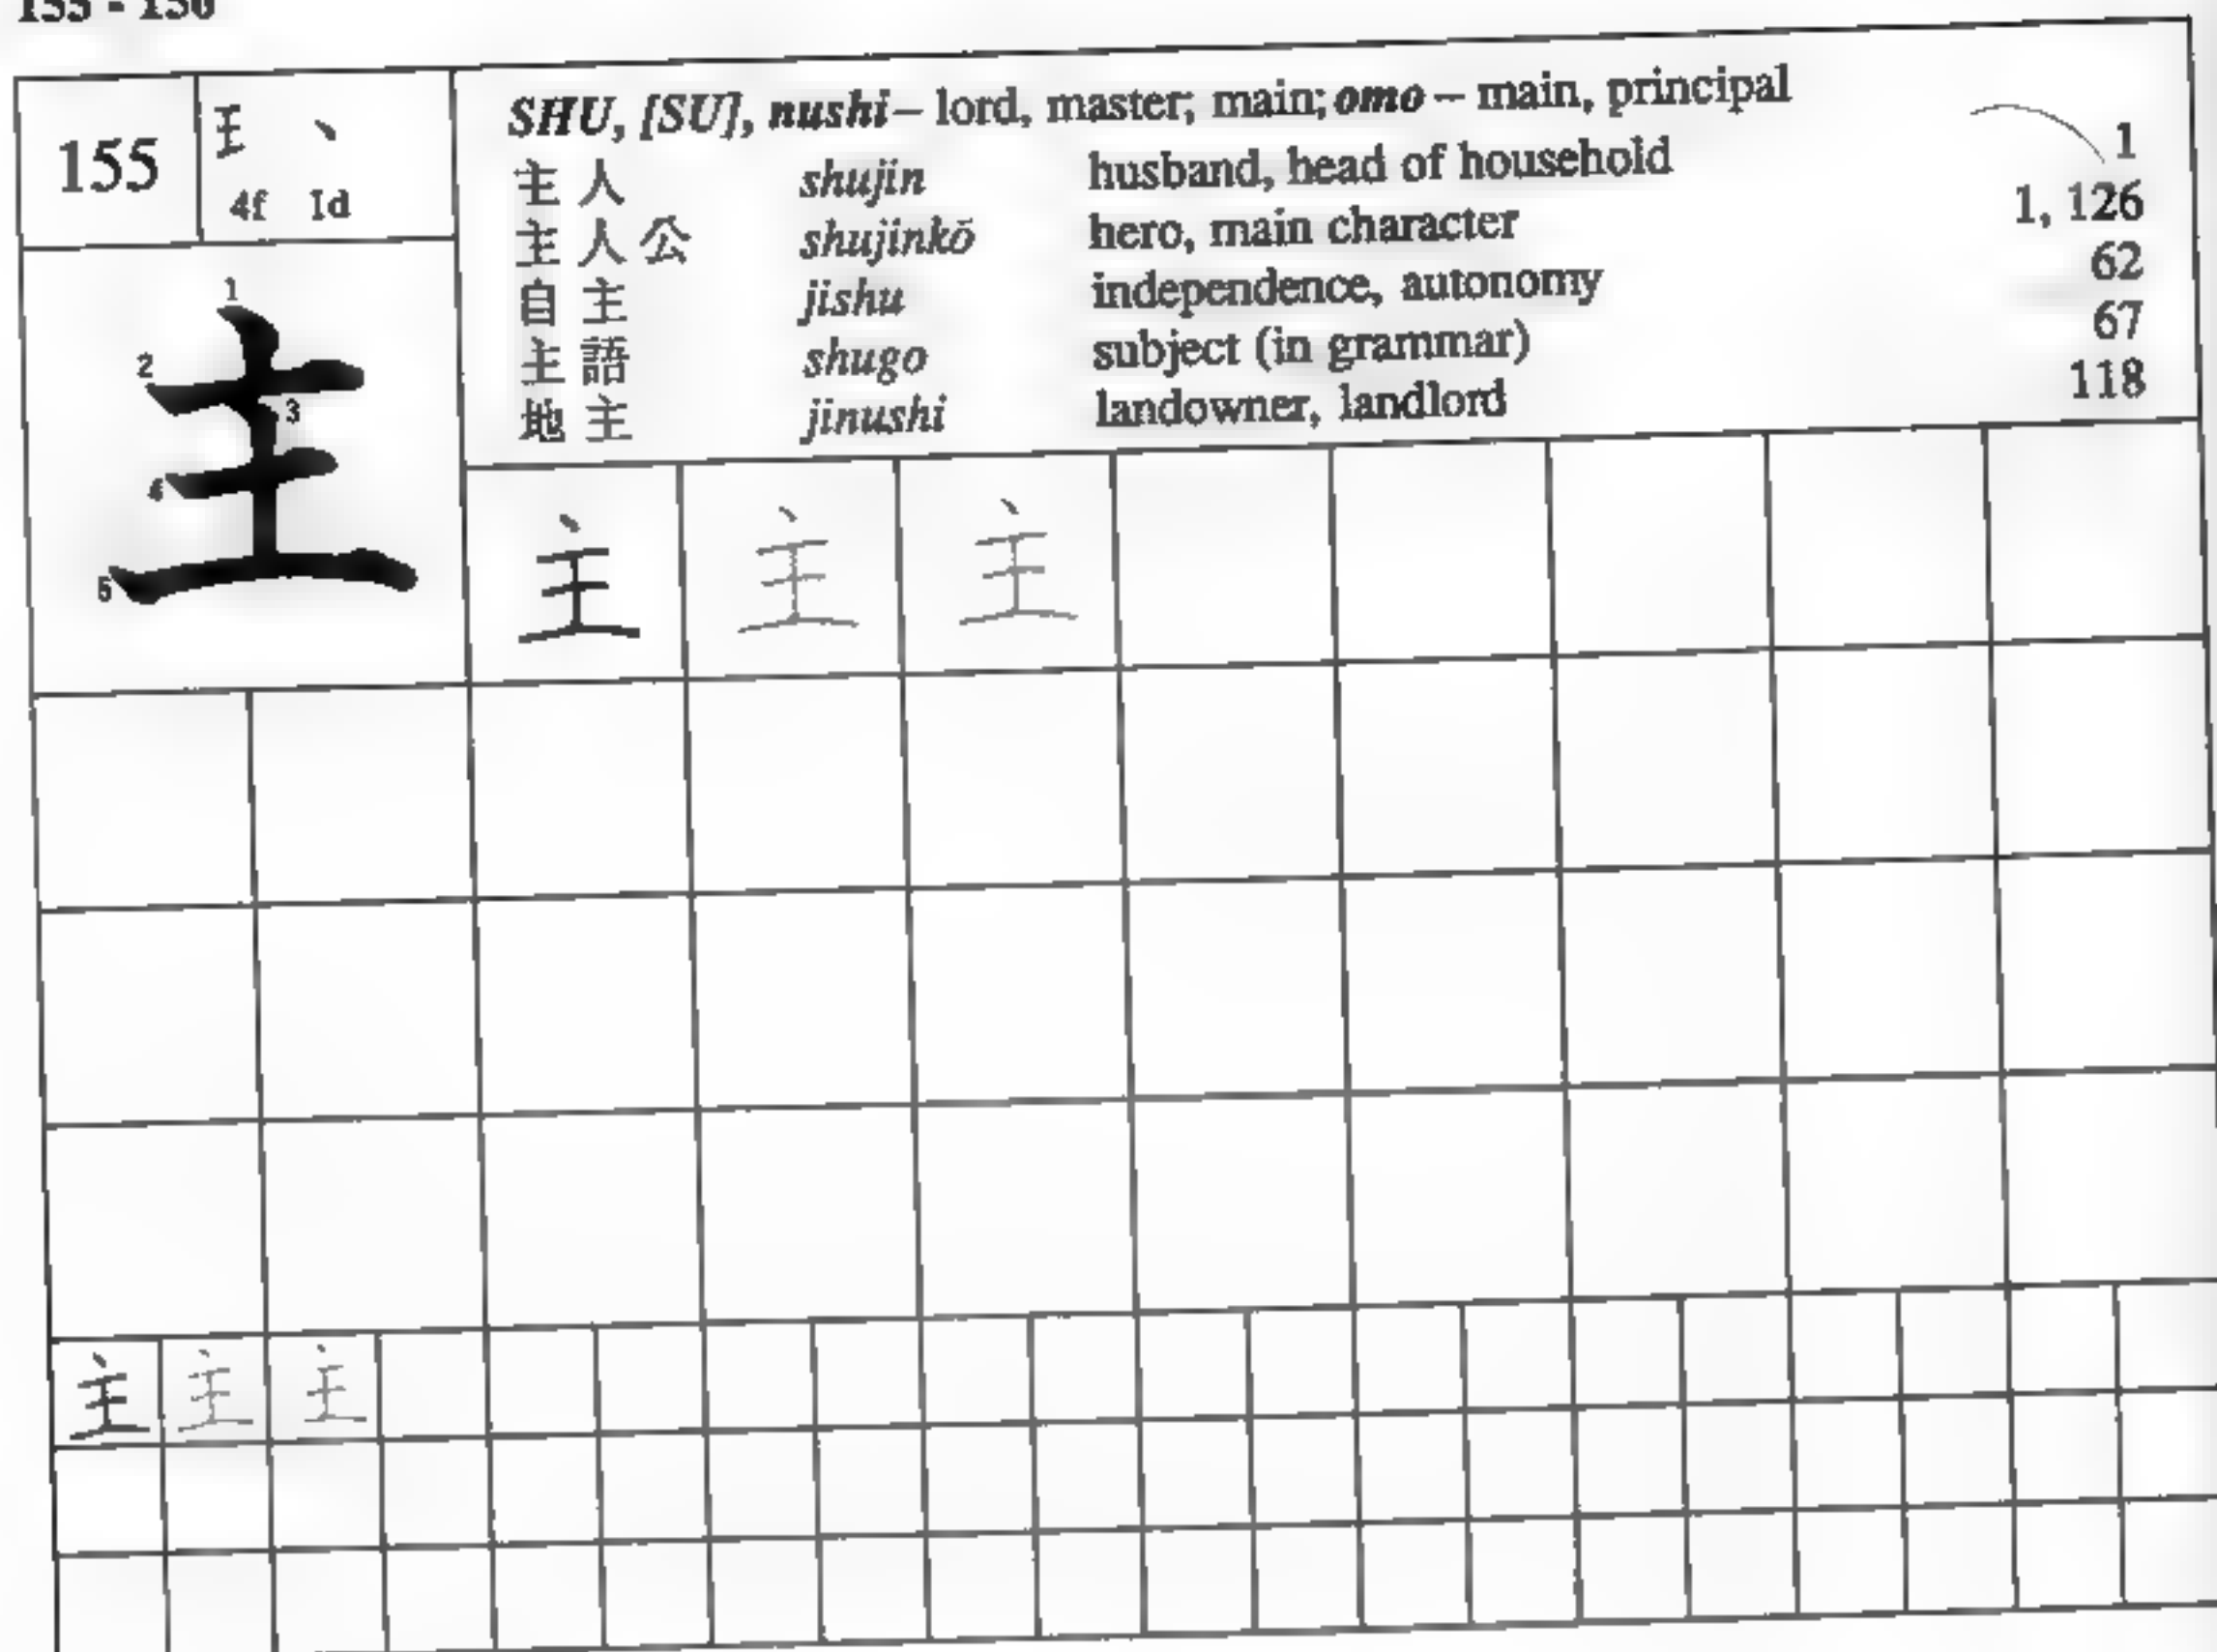 155 - 156
155
王 丶
4f 1d
SHU, [SU], nushi – lord, master; main; omo – main, principal
主人 shujin husband, head of household 1
主人公 shujinkō hero, main character 1, 126
自主 jishu independence, autonomy 62
主語 shugo subject (in grammar) 67
地主 jinushi landowner, landlord 118
1
2
3
4
5
主
主 主 主
主 主 主